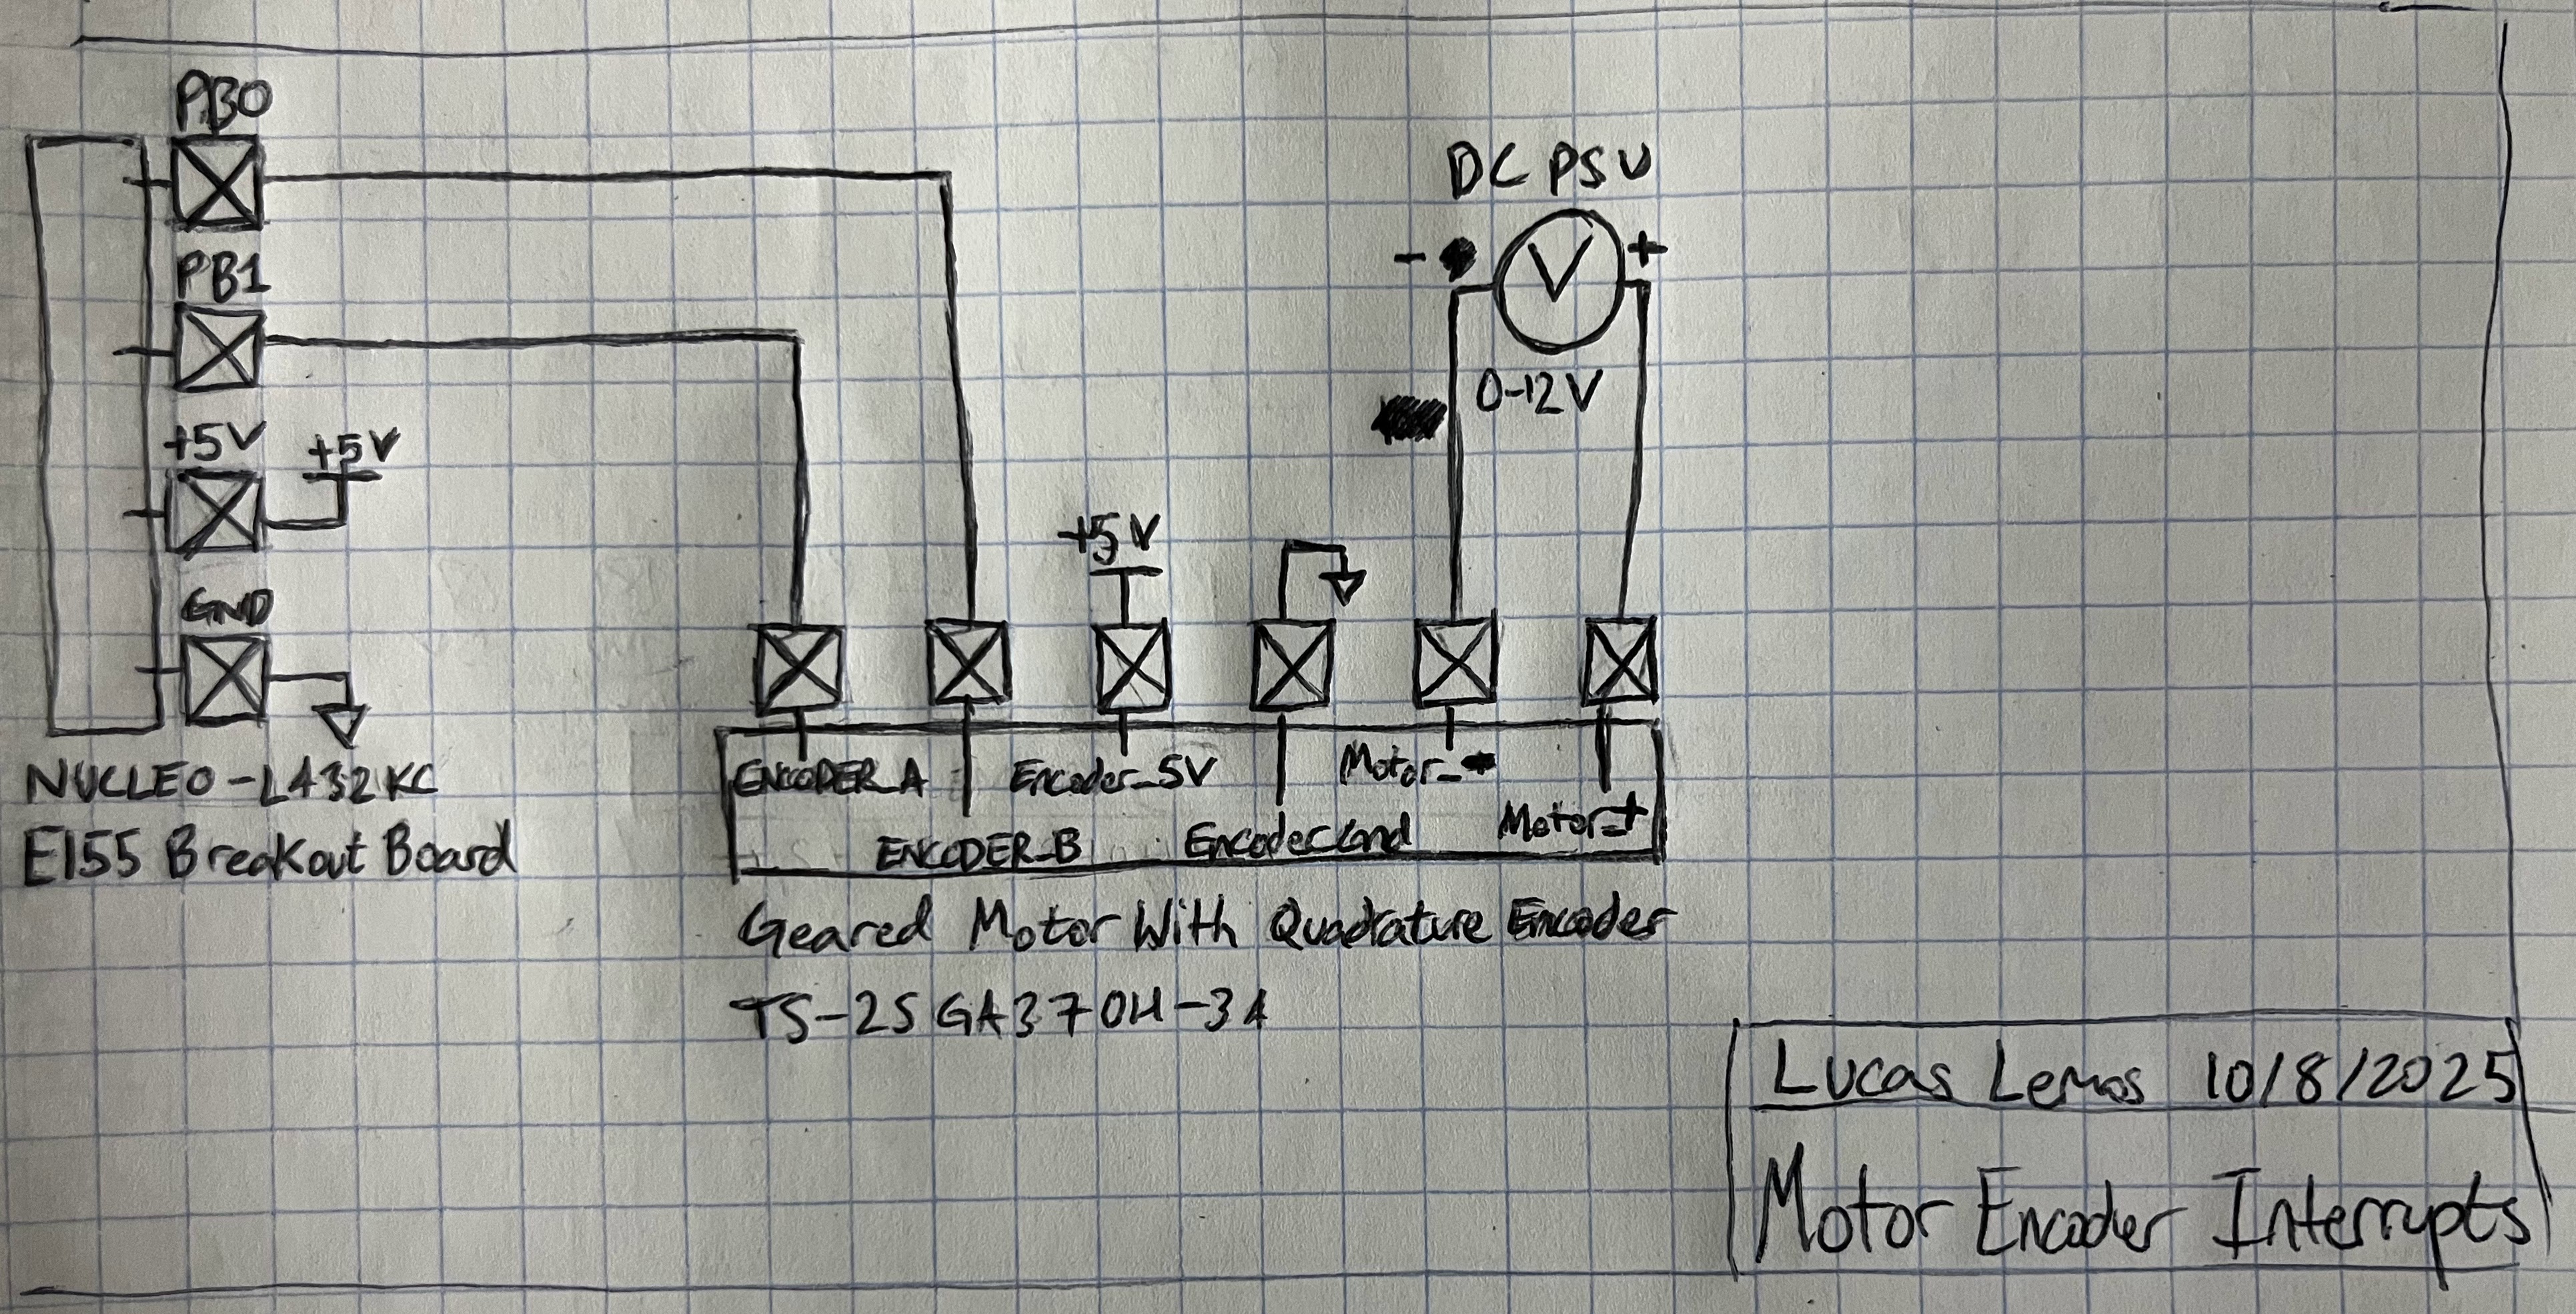 PB0
PB1
+5V
+5V
GND
NUCLEO-L432KC
E155 Breakout Board
DC PSU
- +
V
0-12V
+5V
ENCODER_A
ENCODER_B
Encoder_5V
Encoder Gnd
Motor_-
Motor_+
Geared Motor With Quadrature Encoder
TS-25GA370H-34
Lucas Lemos 10/8/2025
Motor Encoder Interrupts